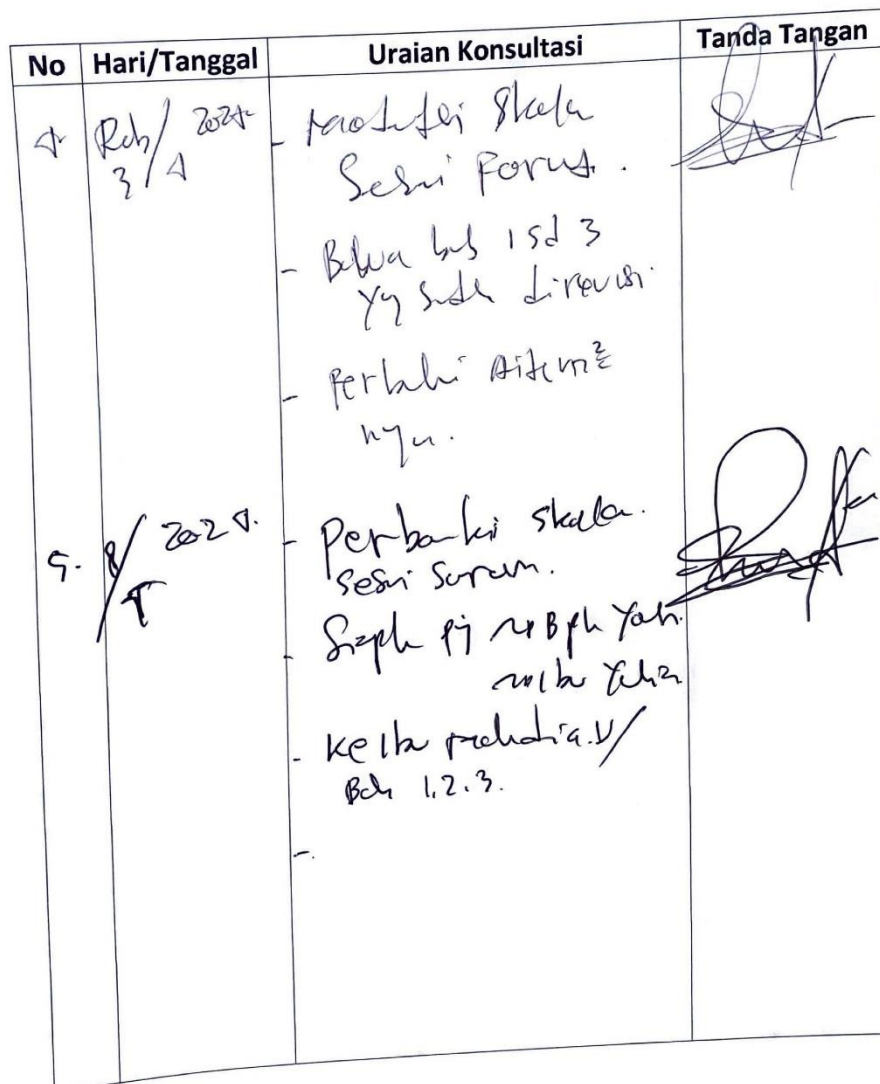 No Hari/Tanggal Uraian Konsultasi Tanda Tangan
4 Rab/ 2024 - Skala
3/4 Sesui Format.
- Bawa bab 1 sd 3
yg sudah direvisi.
- Perbaiki Aitem²
nya.
5. 8/ 2024. - Perbaiki skala.
sesui saran.
-
- ke Ibu
Bab 1.2.3.
-.